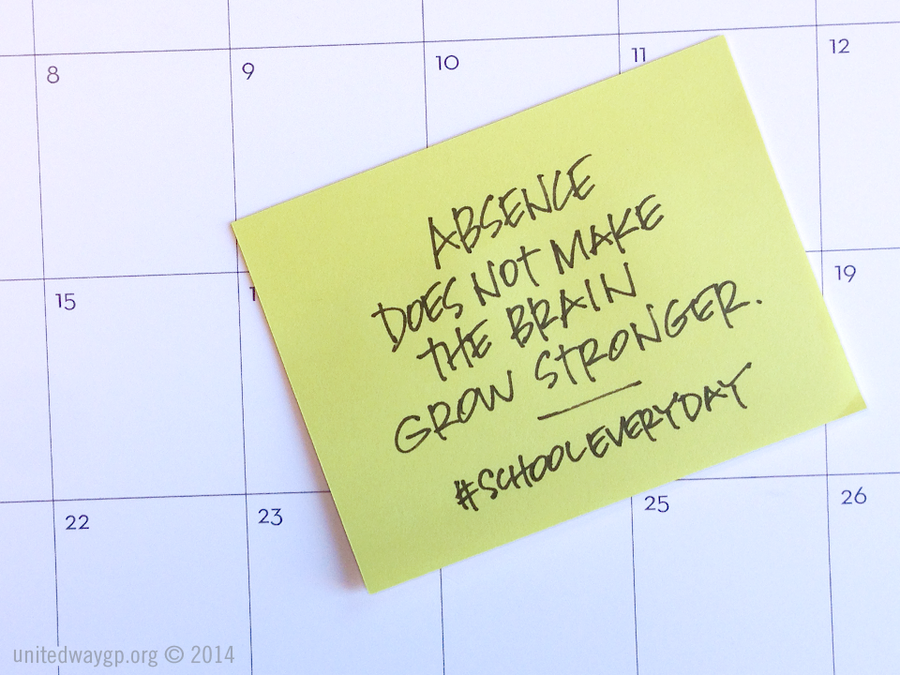 8 9 10 11 12
ABSENCE
DOES NOT MAKE
THE BRAIN
GROW STRONGER.
#SCHOOLEVERYDAY
15 19
22 23 25 26
unitedwaygp.org © 2014